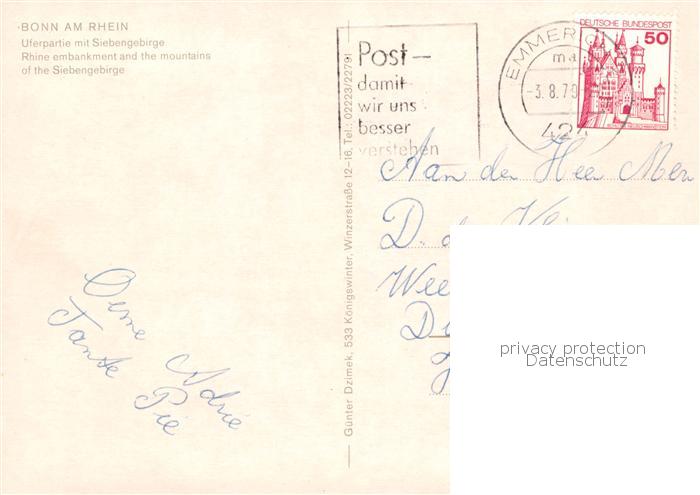 ·BONN AM RHEIN
Uferpartie mit Siebengebirge
Rhine embankment and the mountains
of the Siebengebirge
Post—
damit
wir uns
besser
verstehen
EMMERICH
ma
-3.8.79
424
DEUTSCHE BUNDESPOST
50
Günter Dzimek, 533 Königswinter, Winzerstraße 12-16, Tel.: 02223/22791
Aan de Heer Mev
D. de
Wee
Oime Adrie
Tante Pie
privacy protection
Datenschutz